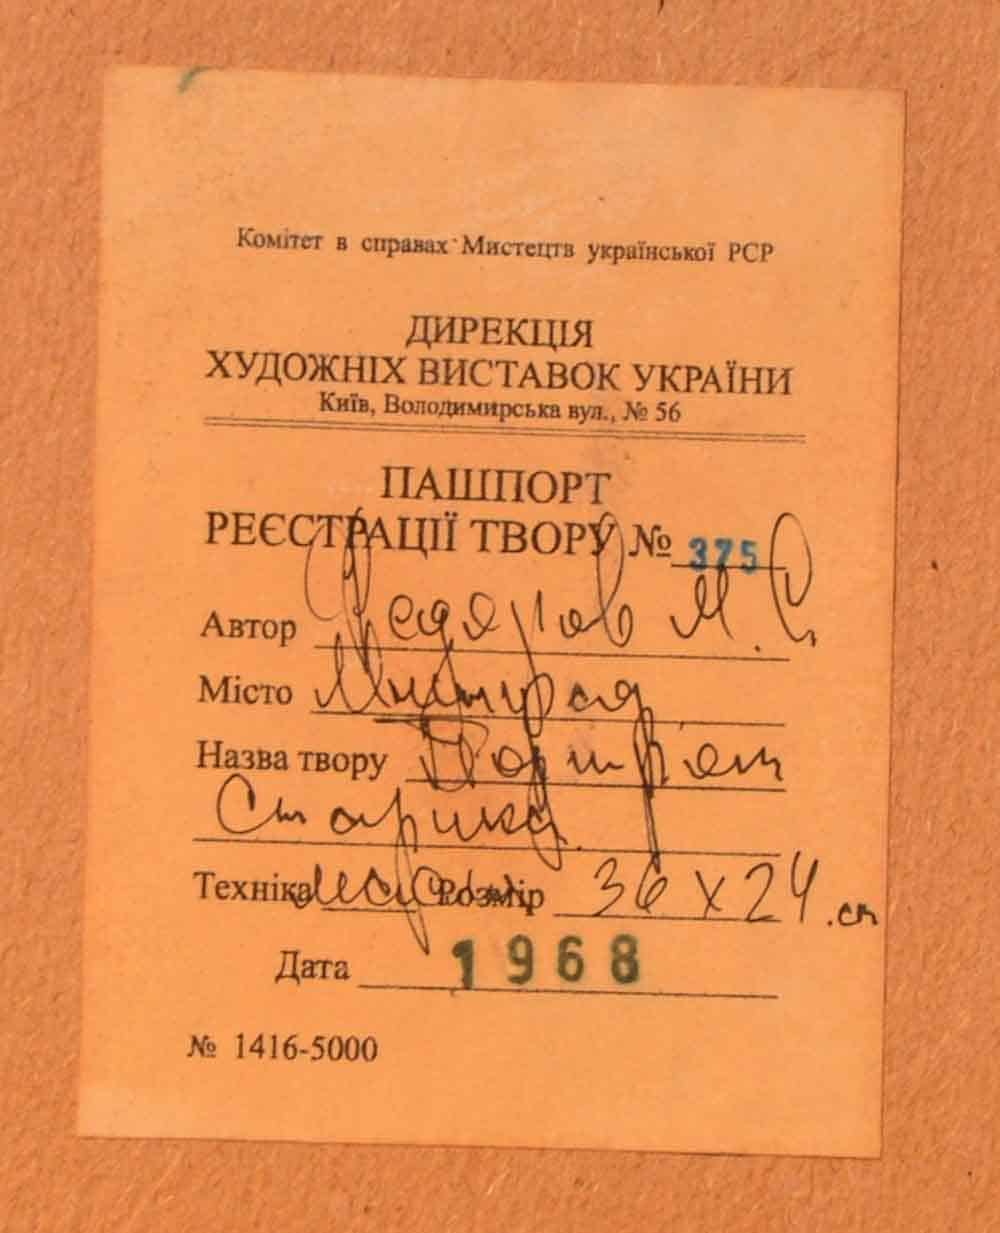 Комітет в справах Мистецтв української РСР
ДИРЕКЦІЯ
ХУДОЖНІХ ВИСТАВОК УКРАЇНИ
Київ, Володимирська вул., № 56
ПАШПОРТ
РЕЄСТРАЦІЇ ТВОРУ № 375
Автор М. С
Місто
Назва твору Портрет
Старика
Техніка Розмір 36 х 24 см
Дата 1968
№ 1416-5000